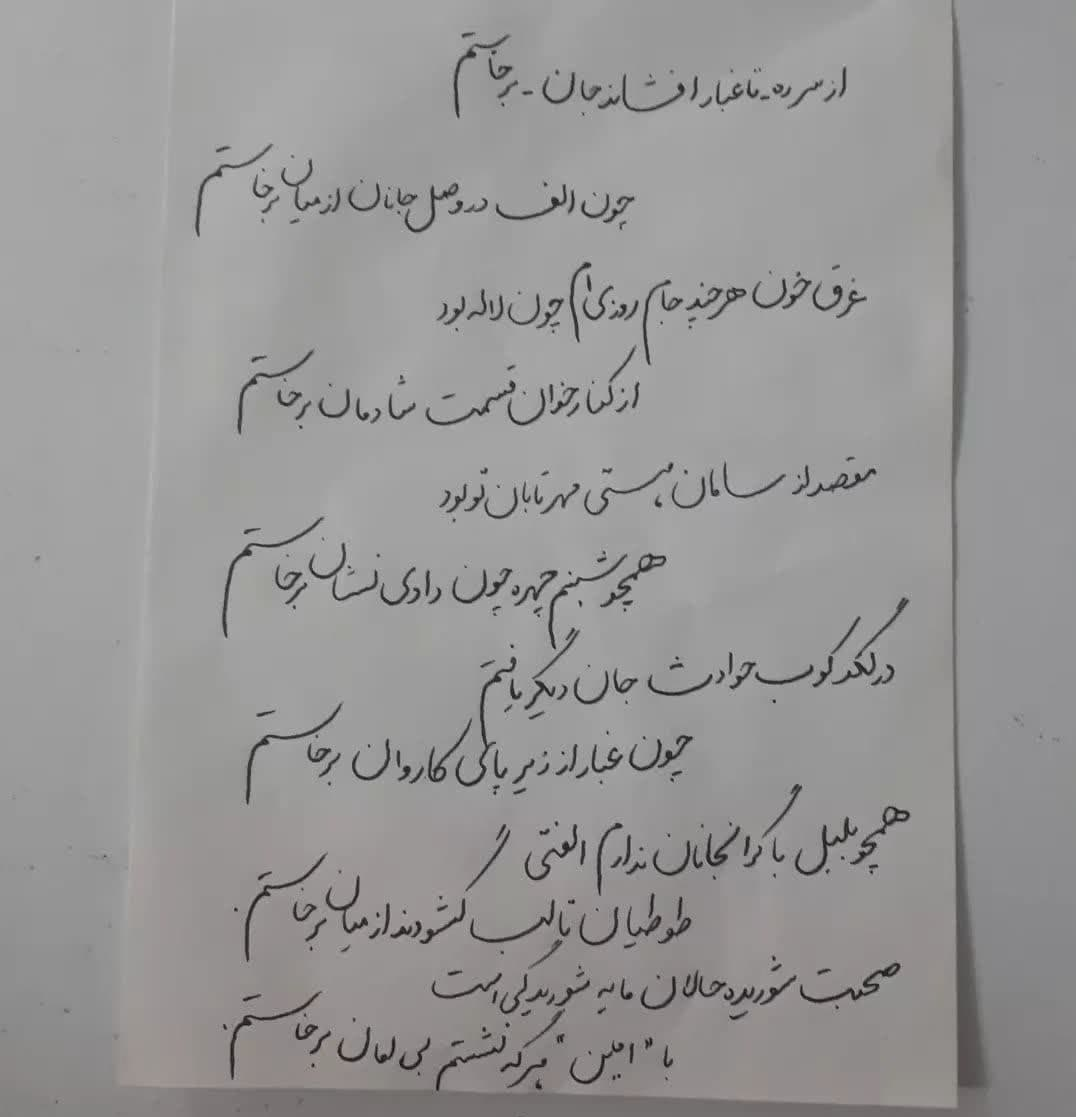 از سر ره - تا غبار افشاند جان - برخاستم
چون الف در وصل جانان از میان برخاستم
غرق خون هرچند جام روزی ام چون لاله بود
از کنار خوان قسمت شادمان برخاستم
مقصد از سامان هستی مهر تابان تو بود
همچو شبنم چهره چون دادی نشان برخاستم
در لگدکوب حوادث جان دیگر یافتم
چون غبار از زیر پای کاروان برخاستم
همچو بلبل با گرانجانان ندارم الفتی
طوطیان تا لب گشودند از میان برخاستم.
صحبت شوریده حالان مایه شوریدگی است
با "امین" هر که نشستم بی امان برخاستم.